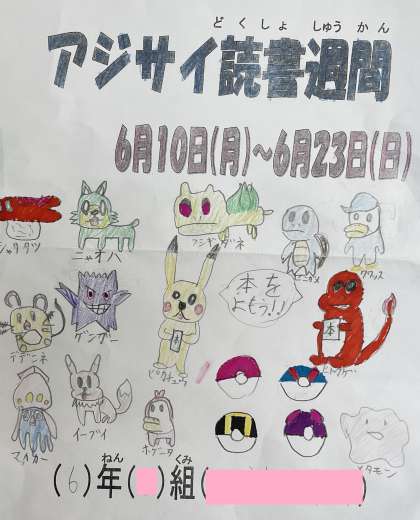 どくしょ しゅうかん
アジサイ読書週間
6月10日(月)~6月23日(日)
シャリタツ
ニャオハ
フシギダネ
ゼニガメ
クワッス
本を
よもう!!
デデンネ
ゲンガー
本
ピカチュウ
本
ヒトカゲ
マケンカニ
イーブイ
ホゲータ
メタモン
ねん くみ
(6)年( )組( )